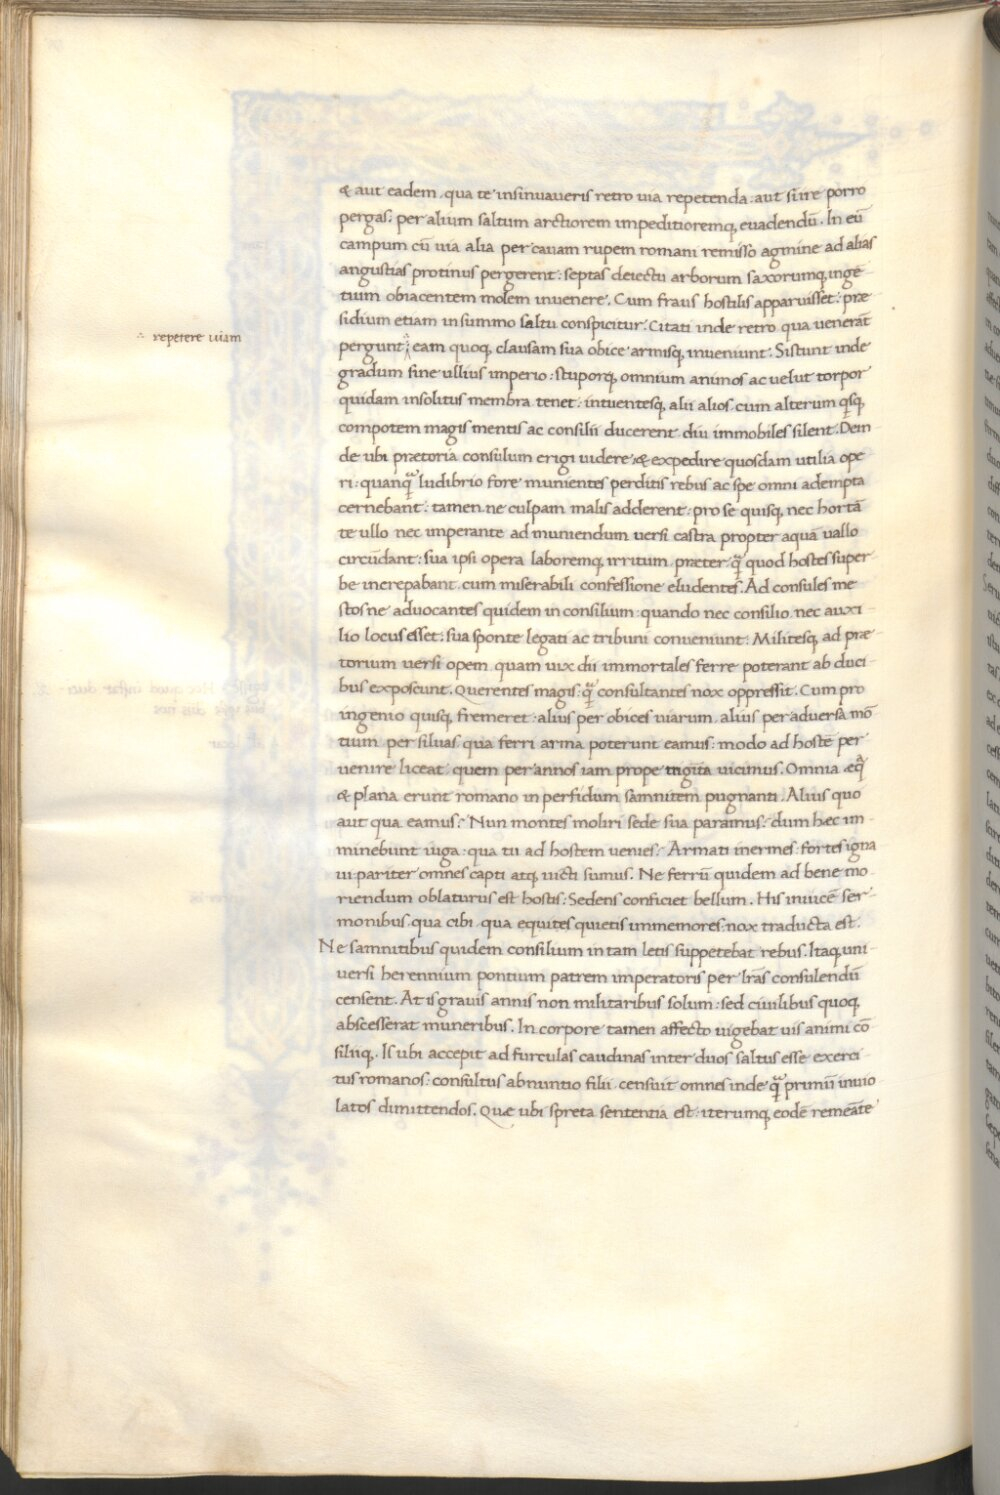 & aut eadem qua te insinuaueris retro uia repetenda: aut si ire porro
pergas: per alium saltum arctiorem impeditioremq; euadendū. In eū
campum cū uia alia per cauam rupem romani remisso agmine ad alias
angustias protinus pergerent: septas deiectu arborum saxorumq; inge
tium obiacentem molem inuenere. Cum fraus hostilis apparuisset: præ
sidium etiam in summo saltu conspicitur. Citati inde retro qua uenerāt
repetere uiam
pergunt: eam quoq; clausam sua obice armisq; inueniunt. Sistunt inde
gradum sine ullius imperio: stuporq; omnium animos ac uelut torpor
quidam insolitus membra tenet: intuentesq; alii alios cum alterum qsq;
compotem magis mentis ac consilii ducerent diu immobiles silent. Dein
de ubi prætoria consulum erigi uidere & expedire quosdam utilia ope
ri: quanq̄ ludibrio fore munientes perditis rebus ac spe omni adempta
cernebant: tamen ne culpam malis adderent: pro se quisq; nec hortā
te ullo nec imperante ad muniendum uersi castra propter aquā uallo
circūdant: sua ipsi opera laboremq; irritum præter q̄ quod hostes super
be increpabant cum miserabili confessione eludentes. Ad consules me
stos ne aduocantes quidem in consilium: quando nec consilio nec auxi
lio locus esset: sua sponte legati ac tribuni conueniunt: Militesq; ad præ
torium uersi opem quam uix dii immortales ferre poterant ab duci
bus exposcunt. Querentes magis q̄ consultantes nox oppressit. Cum pro
ingenio quisq; fremeret: alius per obices uiarum alius per aduersa mō
tium per siluas qua ferri arma poterunt eamus: modo ad hostē per
uenire liceat quem per annos iam prope triginta uicimus. Omnia eq̄
& plana erunt romano in perfidum samnitem pugnanti. Alius quo
aut qua eamus? Num montes moliri sede sua paramus? dum hæc im
minebunt iuga: qua tu ad hostem uenies? Armati inermes fortes igna
ui pariter omnes capti atq; uicti sumus. Ne ferrū quidem ad bene mo
riendum oblaturus est hostis: Sedens conficiet bellum. His inuicē ser
monibus qua cibi qua equites quietis immemores nox traducta est.
Ne samnitibus quidem consilium in tam letis suppetebat rebus. Itaq; uni
uersi herennium pontium patrem imperatoris per lras consulendū
censent. At is grauis annis non militaribus solum: sed ciuilibus quoq;
abscesserat muneribus. In corpore tamen affecto uigebat uis animi cō
siliiq;. Is ubi accepit ad furculas caudinas inter duos saltus esse exerci
tus romanos: consultus ab nuntio filii censuit omnes inde q̄ primū inuio
latos dimittendos. Quæ ubi spreta sententia est: iterumq; eodē remeāte